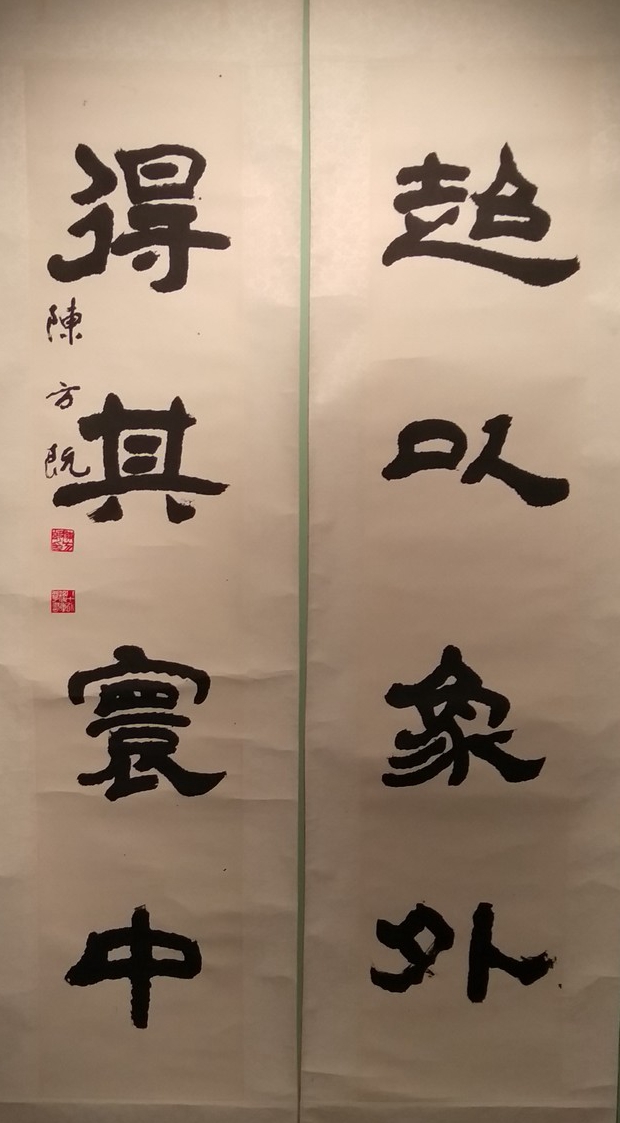 超以象外
得其寰中
陳方既